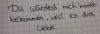 Du würdest mich immer
bekommen, weil ich dich
Liebe